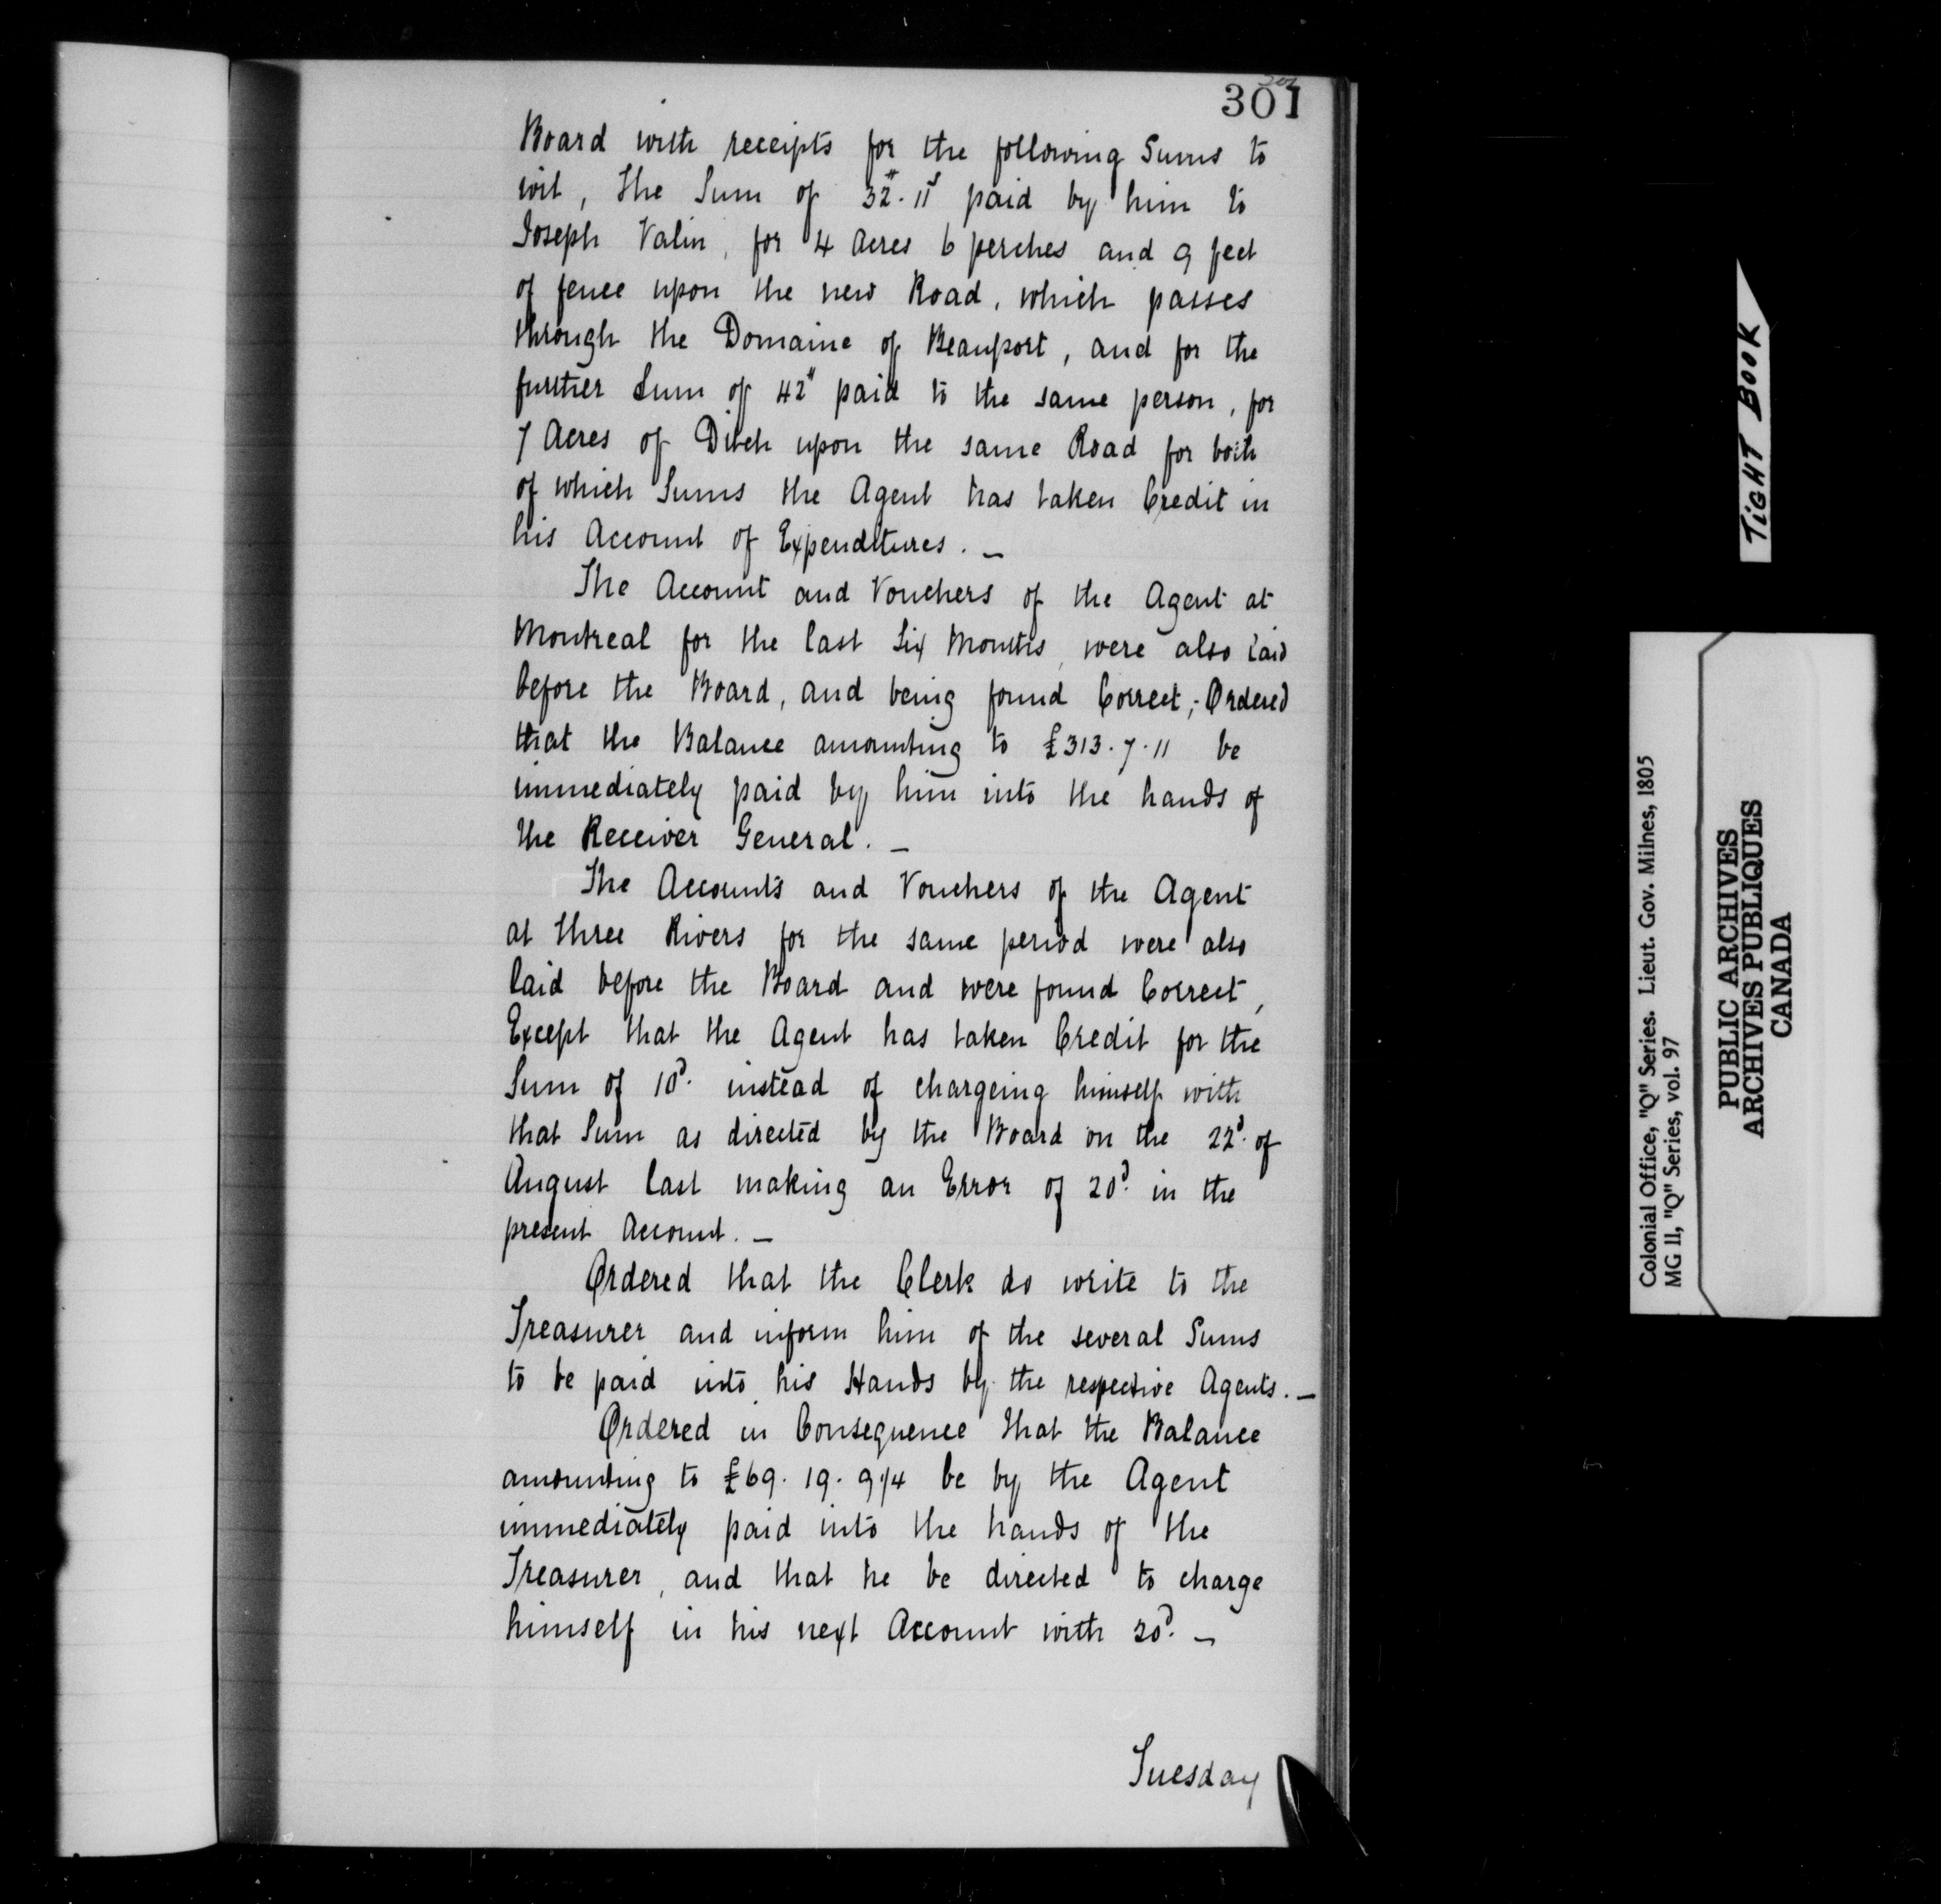 301
Board with receipts for the following Sums to
wit, the Sum of 32". 11s paid by him to
Joseph Valin, for 4 Acres 6 perches and 9 feet
of fence upon the new Road, which passes
through the Domaine of Beauport, and for the
further Sum of 42" paid to the same person, for
7 Acres of Ditch upon the same Road for both
of which Sums the Agent has taken Credit in
his Account of Expenditures. —
The Account and Vouchers of the Agent at
Montreal for the last Six Months, were also laid
before the Board, and being found Correct;- Ordered
that the Balance amounting to £313. 7. 11 be
immediately paid by him into the hands of
the Receiver General. —
The Accounts and Vouchers of the Agent
at three Rivers for the same period were also
laid before the Board and were found Correct,
Except that the Agent has taken Credit for the
Sum of 10d. instead of chargeing himself with
that Sum as directed by the Board on the 22d. of
August last making an Error of 20d. in the
present Account. —
Ordered that the Clerk do write to the
Treasurer and inform him of the several Sums
to be paid into his Hands by the respective Agents. —
Ordered in Consequence that the Balance
amounting to £69. 19. 9 1/4 be by the Agent
immediately paid into the hands of the
Treasurer, and that he be directed to charge
himself in his next Account with 20d. —
Tuesday
TIGHT BOOK
Colonial Office, "Q" Series. Lieut. Gov. Milnes, 1805
MG 11, "Q" Series, vol. 97
PUBLIC ARCHIVES
ARCHIVES PUBLIQUES
CANADA